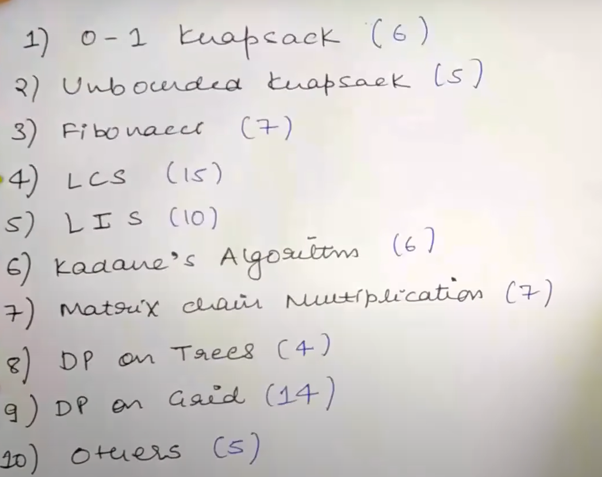 1) 0-1 Knapsack (6)
2) Unbounded Knapsack (5)
3) Fibonacci (7)
4) LCS (15)
5) LIS (10)
6) Kadane's Algorithm (6)
7) Matrix chain Multiplication (7)
8) DP on Trees (4)
9) DP on Grid (14)
10) Others (5)